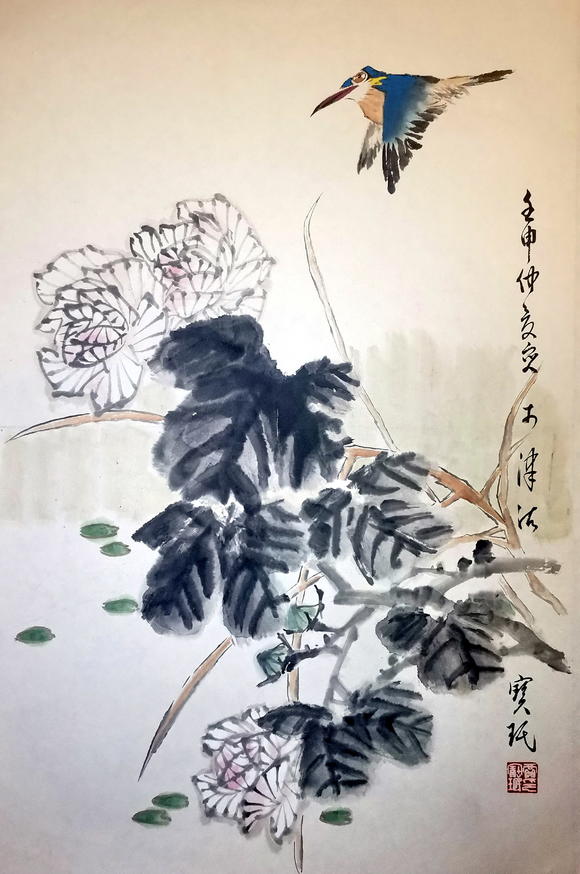 壬申仲夏写于津沽
寶珉